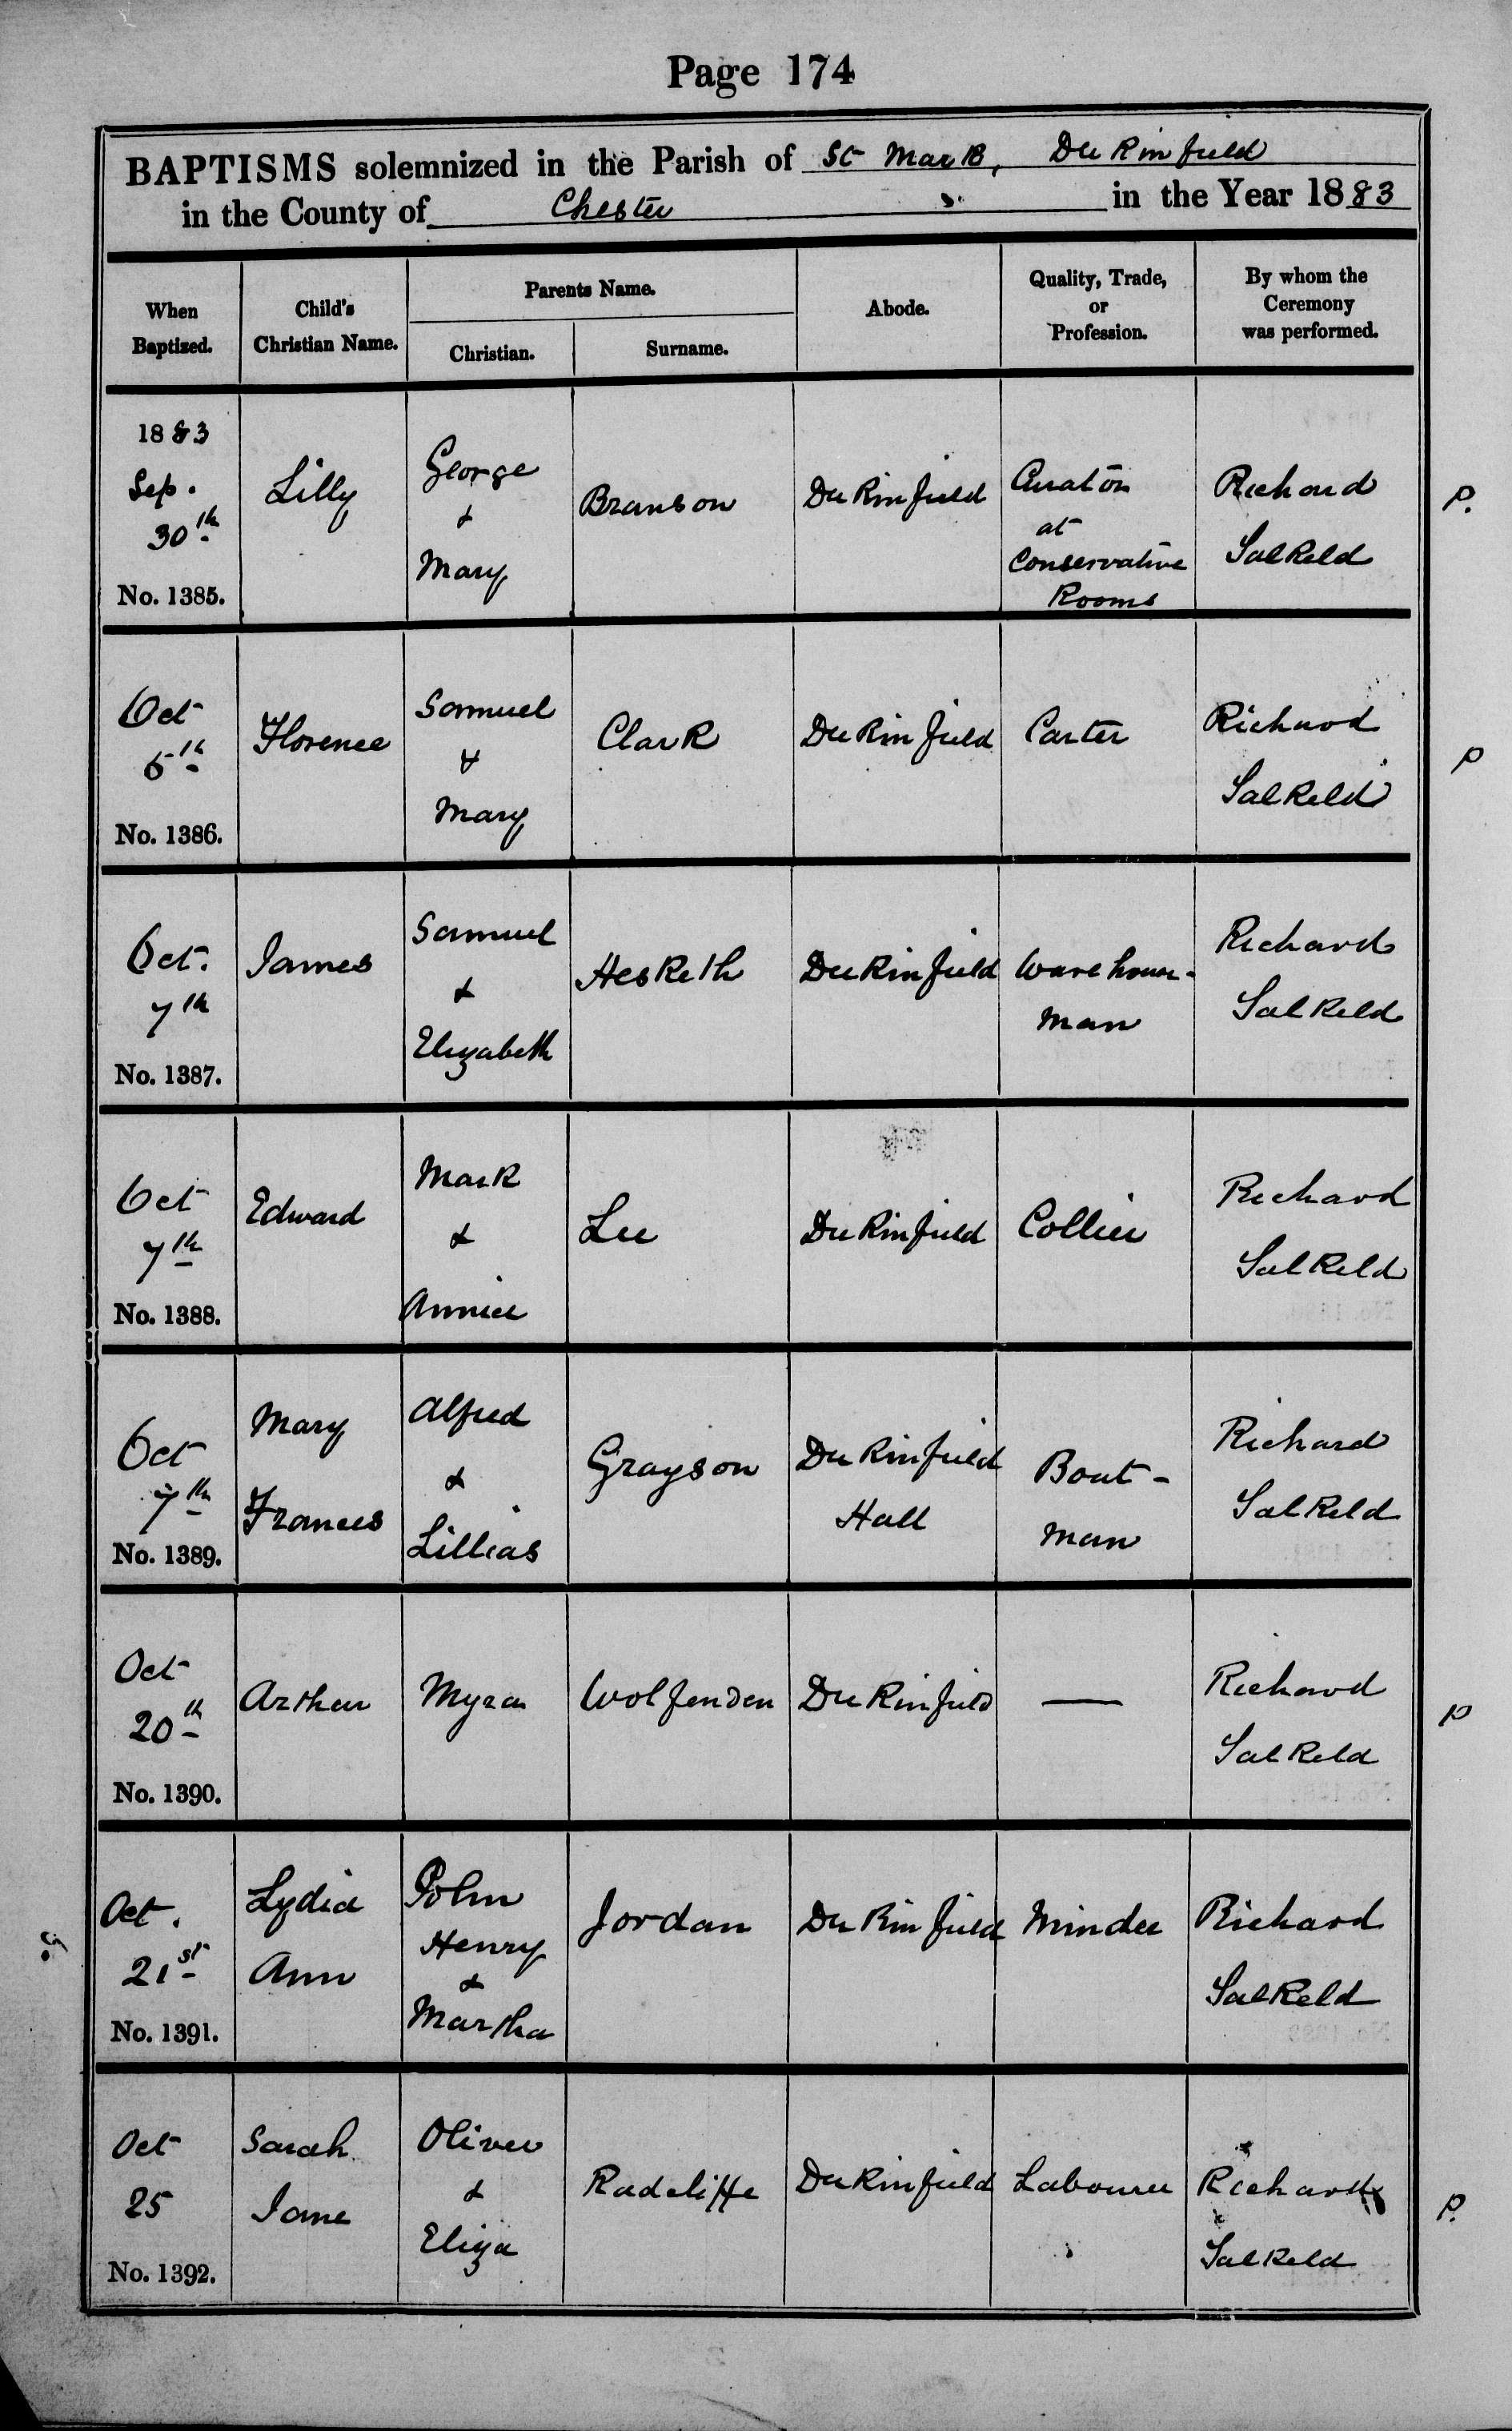 Page 174
BAPTISMS solemnized in the Parish of St Mark, Dukinfield
in the County of Chester in the Year 1883
When Baptized.
Child's Christian Name.
Parents Name.
Christian.
Surname.
Abode.
Quality, Trade, or Profession.
By whom the Ceremony was performed.
1883
Sep.
30th
No. 1385.
Lilly
George
&
Mary
Branson
Dukinfield
Curator
at
Conservative
Rooms
Richard
Salkeld
P.
Oct
6th
No. 1386.
Florence
Samuel
&
Mary
Clark
Dukinfield
Carter
Richard
Salkeld
P
Oct.
7th
No. 1387.
James
Samuel
&
Elizabeth
Hesketh
Dukinfield
Warehouse-
man
Richard
Salkeld
Oct
7th
No. 1388.
Edward
Mark
&
Annie
Lee
Dukinfield
Collier
Richard
Salkeld
Oct
7th
No. 1389.
Mary
Frances
Alfred
&
Lillias
Grayson
Dukinfield
Hall
Boat-
man
Richard
Salkeld
Oct
20th
No. 1390.
Arthur
Myra
Wolfenden
Dukinfield
—
Richard
Salkeld
P
Oct.
21st
No. 1391.
Lydia
Ann
John
Henry
&
Martha
Jordan
Dukinfield
Minder
Richard
Salkeld
Oct
25
No. 1392.
Sarah
Jane
Oliver
&
Eliza
Radcliffe
Dukinfield
Labourer
Richard
Salkeld
P.